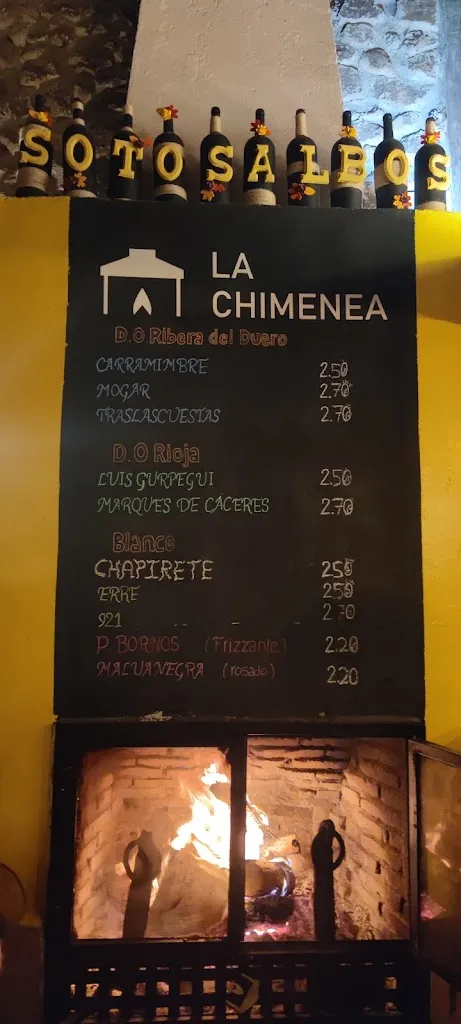 SOTOSALBOS
LA
CHIMENEA
D.O Ribera del Duero
CARRAMIMBRE 2.50
MOGAR 2.70
TRASLASCUESTAS 2.70
D.O Rioja
LUIS GURPEGUI 2.50
MARQUES DE CÁCERES 2.70
Blanco
CHAPIRETE 250
ERRE 250
921 2.70
P. BORNOS (Frizzante) 2.20
MALVANEGRA (rosado) 2.20